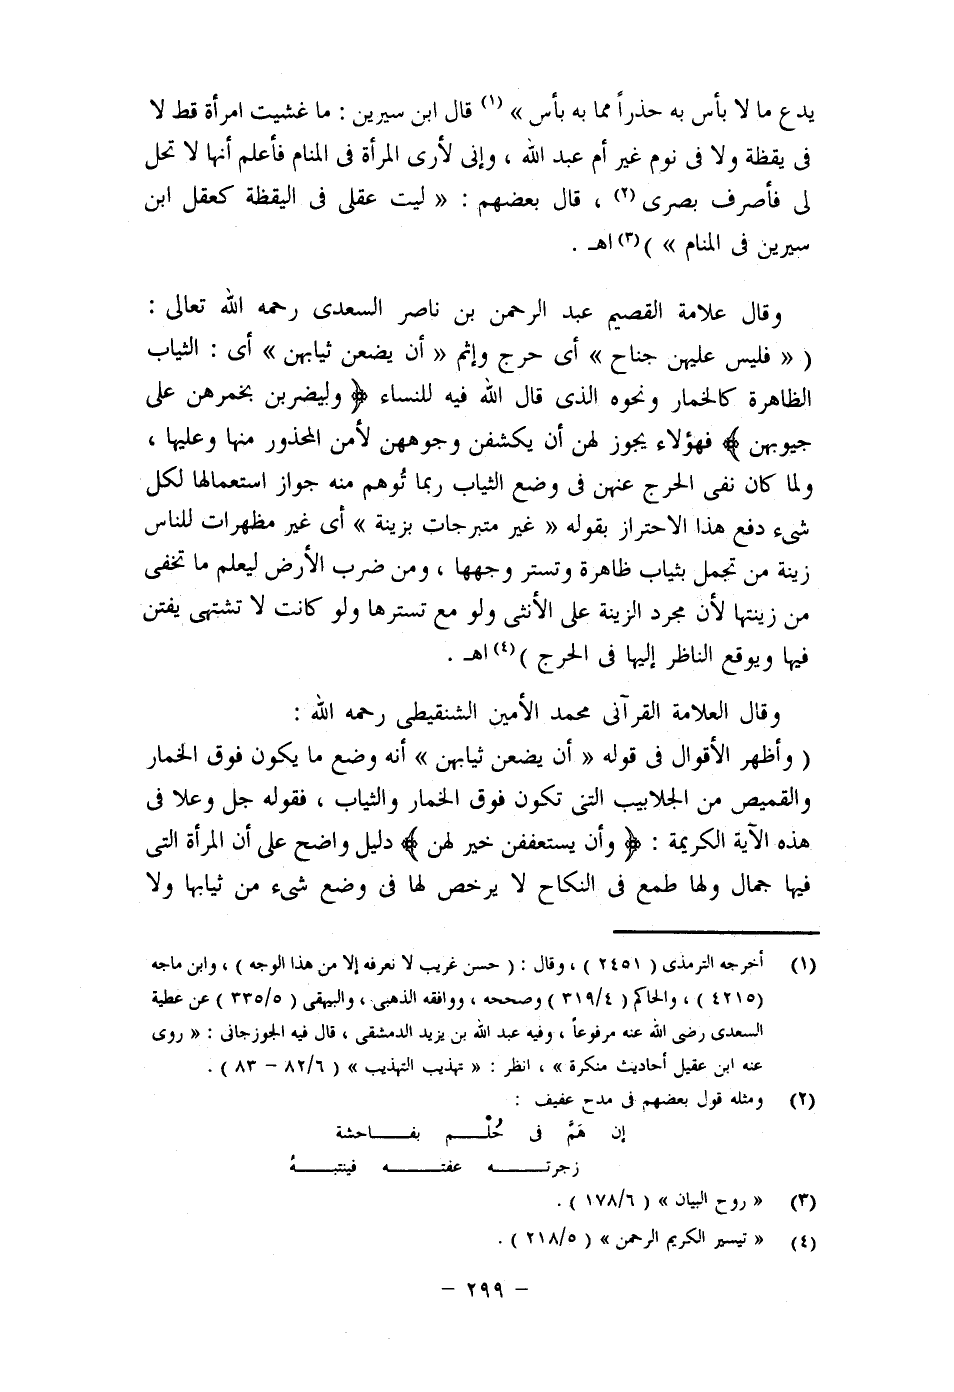 يدع ما لا بأس به حذراً مما به بأس » (١) قال ابن سيرين : ما غشيت امرأة قط لا
فى يقظة ولا فى نوم غير أم عبد الله ، وإنى لأرى المرأة فى المنام فأعلم أنها لا تحل
لى فأصرف بصرى (٢) ، قال بعضهم : « ليت عقلى فى اليقظة كعقل ابن
سيرين فى المنام » ) (٣) اهـ .
وقال علامة القصيم عبد الرحمن بن ناصر السعدى رحمه الله تعالى :
( « فليس عليهن جناح » أى حرج وإثم « أن يضعن ثيابهن » أى : الثياب
الظاهرة كالخمار ونحوه الذى قال الله فيه للنساء ﴿ وليضربن بخمرهن على
جيوبهن ﴾ فهؤلاء يجوز لهن أن يكشفن وجوههن لأمن المحذور منها وعليها ،
ولما كان نفى الحرج عنهن فى وضع الثياب ربما تُوهم منه جواز استعمالها لكل
شىء دفع هذا الاحتراز بقوله « غير متبرجات بزينة » أى غير مظهرات للناس
زينة من تجمل بثياب ظاهرة وتستر وجهها ، ومن ضرب الأرض ليعلم ما تخفى
من زينتها لأن مجرد الزينة على الأنثى ولو مع تسترها ولو كانت لا تشتهى يفتن
فيها ويوقع الناظر إليها فى الحرج ) (٤) اهـ .
وقال العلامة القرآنى محمد الأمين الشنقيطى رحمه الله :
( وأظهر الأقوال فى قوله « أن يضعن ثيابهن » أنه وضع ما يكون فوق الخمار
والقميص من الجلابيب التى تكون فوق الخمار والثياب ، فقوله جل وعلا فى
هذه الآية الكريمة : ﴿ وأن يستعففن خير لهن ﴾ دليل واضح على أن المرأة التى
فيها جمال ولها طمع فى النكاح لا يرخص لها فى وضع شىء من ثيابها ولا
(١) أخرجه الترمذى ( ٢٤٥١ ) ، وقال : ( حسن غريب لا نعرفه إلا من هذا الوجه ) ، وابن ماجه
(٤٢١٥ ) ، والحاكم ( ٣١٩/٤ ) وصححه ، ووافقه الذهبى ، والبيهقى ( ٣٣٥/٥ ) عن عطية
السعدى رضى الله عنه مرفوعاً ، وفيه عبد الله بن يزيد الدمشقى ، قال فيه الجوزجانى : « روى
عنه ابن عقيل أحاديث منكرة » ، انظر : « تهذيب التهذيب » ( ٨٢/٦ – ٨٣ ) .
(٢) ومثله قول بعضهم فى مدح عفيف :
إن هَمَّ فى حُلْم بفاحشة
زجرته عفته فينتبهُ
(٣) « روح البيان » ( ١٧٨/٦ ) .
(٤) « تيسير الكريم الرحمن » ( ٢١٨/٥ ) .
– ٢٩٩ –